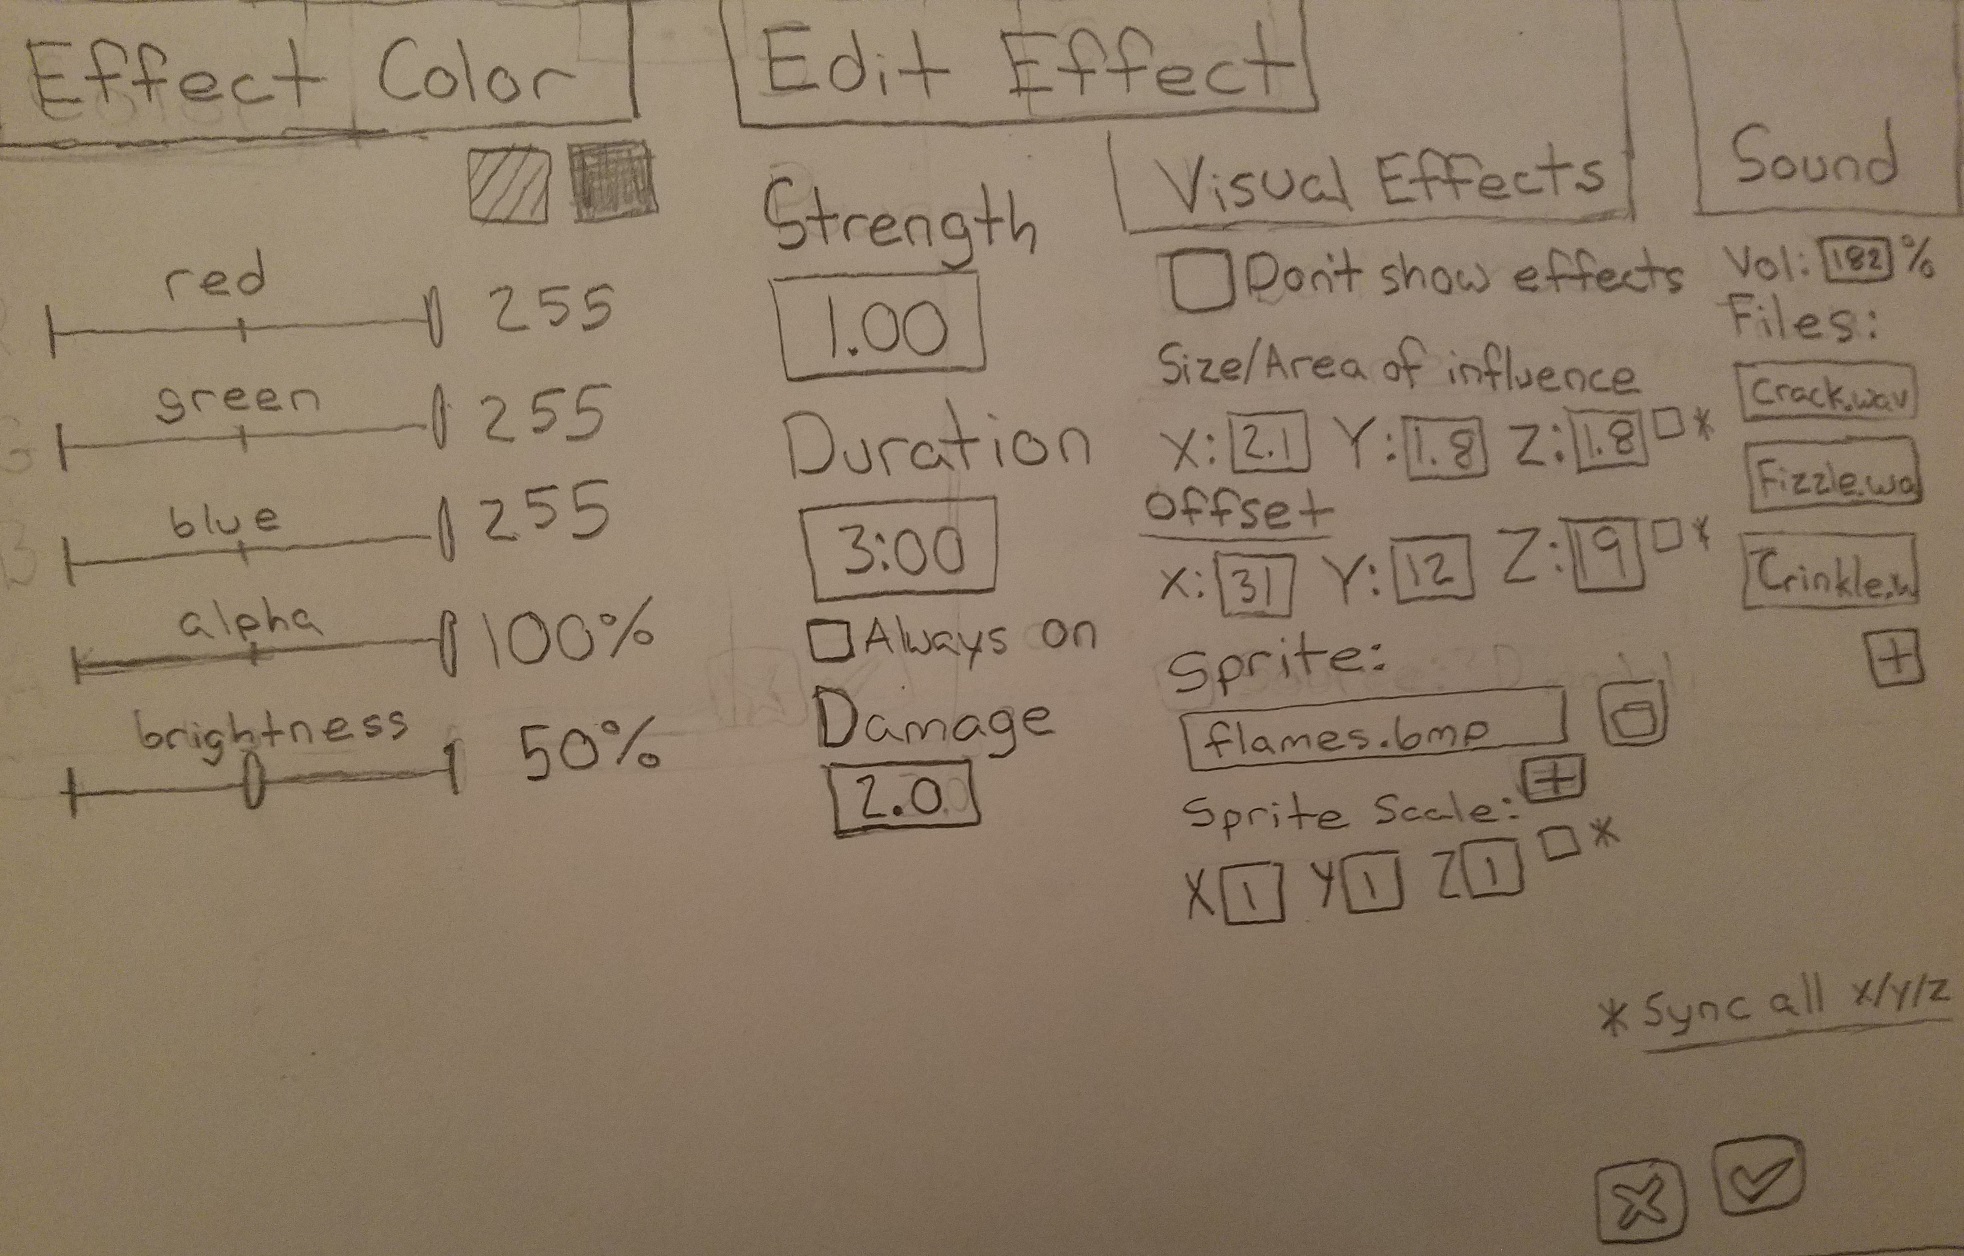 Effect Color
red
255
green
255
blue
255
alpha
100%
brightness
50%
Edit Effect
Strength
1.00
Duration
3:00
Always on
Damage
2.0
Visual Effects
Don't show effects
Size/Area of influence
X: 2.1 Y: 1.8 Z: 1.8 *
Offset
X: 31 Y: 12 Z: 19 *
Sprite:
flames.bmp
+
Sprite Scale:
X 1 Y 1 Z 1 *
Sound
Vol: 182 %
Files:
Crack.wav
Fizzle.wa
Crinkle.w
+
* Sync all X/Y/Z